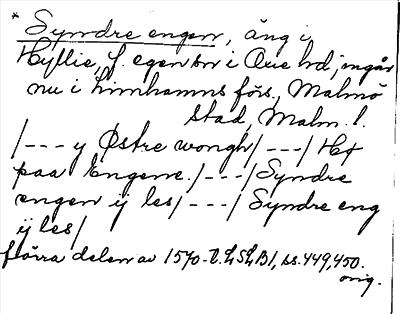 * Syndre engen, äng i,
Hyllie, f. egen sn i Oxie hd; ingår
nu i Limhamns förs., Malmö
stad, Malm. l.
/--- y Østre wongh/---/ Het
paa Engene./---/Syndre
engen ij les/---/ Syndre eng
ij les/
förra delen av 1570-t. LSLB1, ss. 449, 450.
orig.